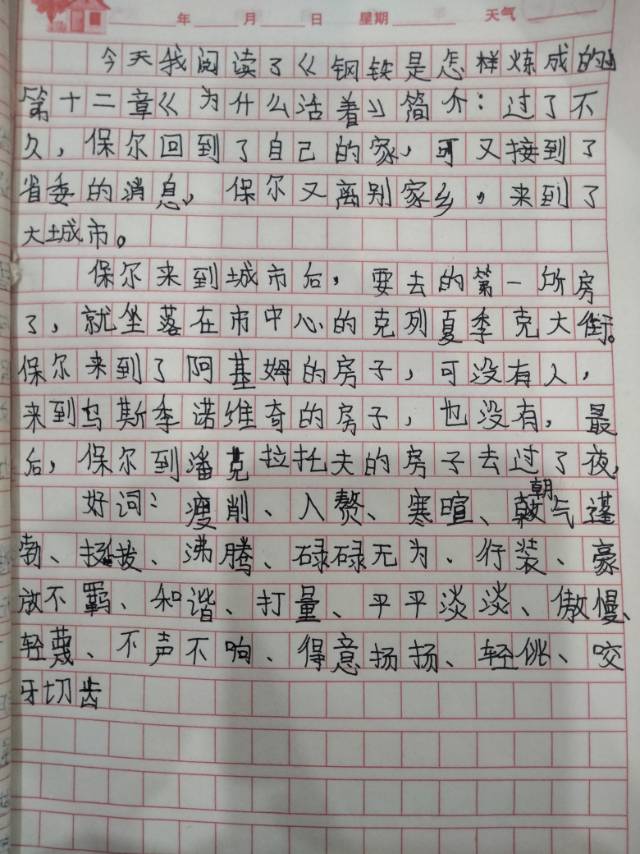 年 月 日 星期 天气
今天我阅读了《钢铁是怎样炼成的》
第十二章《为什么活着》简介：过了不
久，保尔回到了自己的家，可又接到了
省委的消息，保尔又离别家乡，来到了
大城市。
保尔来到城市后，要去的第一所房
了，就坐落在市中心的克列夏季克大街。
保尔来到了阿基姆的房子，可没有人，
来到乌斯季诺维奇的房子，也没有，最
后，保尔到潘克拉托夫的房子去过了夜，
好词：瘦削、入赘、寒暄、朝气蓬
勃、拔、沸腾、碌碌无为、行装、豪
放不羁、和谐、打量、平平淡淡、傲慢、
轻蔑、不声不响、得意扬扬、轻佻、咬
牙切齿